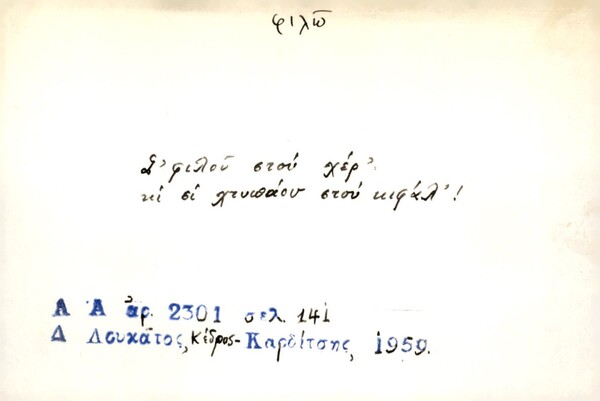 φιλῶ
Σ' φιλοῦ στού χέρ'
κί σί χτυπάου στού κιφάλ'!
Λ Α ἀρ. 2301 σελ. 141
Δ Λουκᾶτος, Κέδρος-Καρδίτσης, 1959.